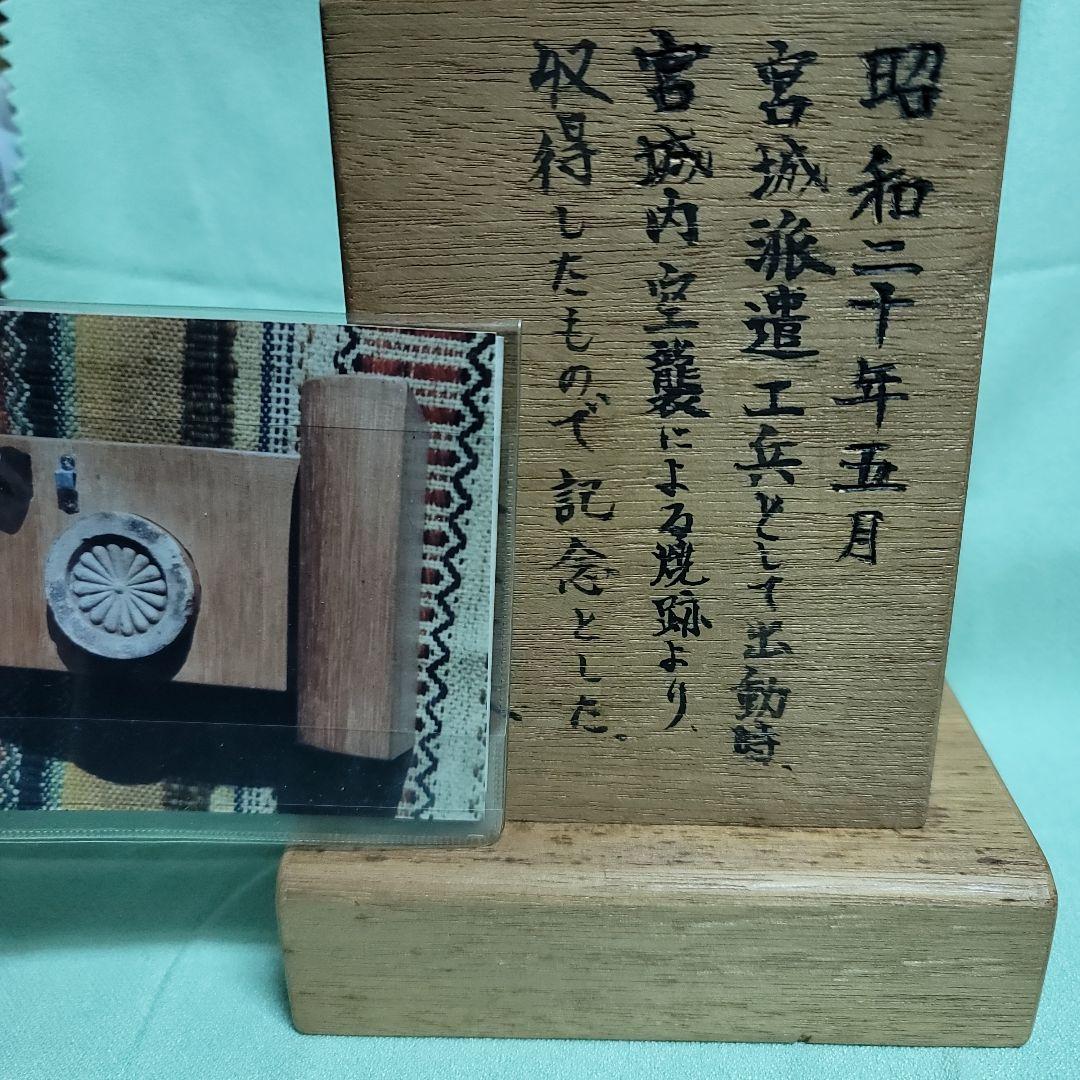 昭和二十年五月
宮城派遣工兵として出動時、
宮城内空襲による焼跡より、
収得したもので記念とした。